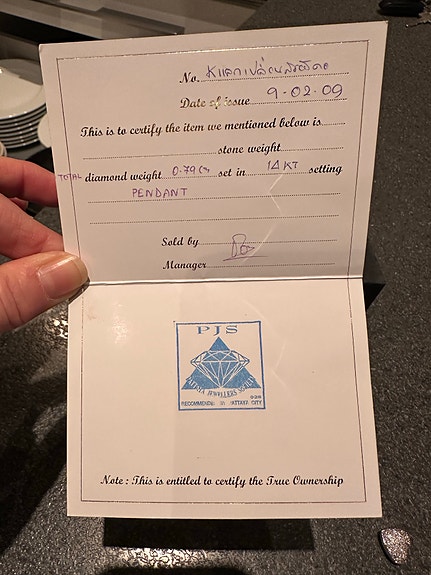 No.
Date of issue 9-02-09
This is to certify the item we mentioned below is
stone weight
TOTAL diamond weight 0.79 Cts set in 14 KT setting
PENDANT
Sold by
Manager
PJS
PATTAYA JEWELLERS SOCIETY
028
RECOMMENDED IN PATTAYA CITY
Note : This is entitled to certify the True Ownership